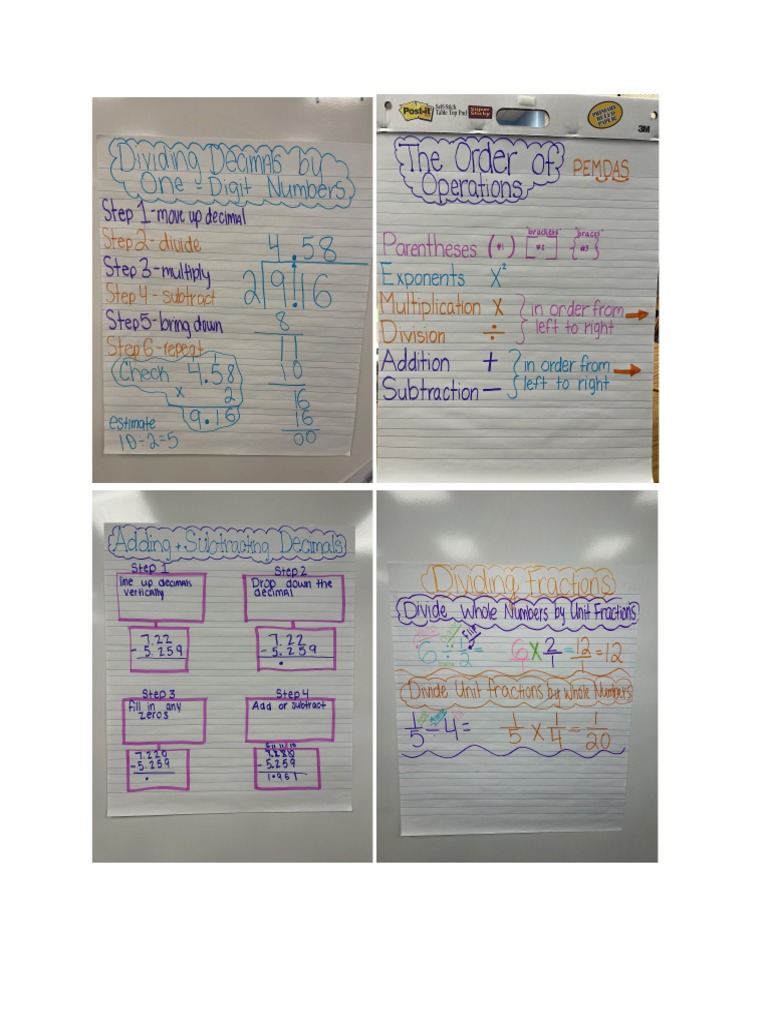 Dividing Decimals by
One-Digit Numbers
Step 1-move up decimal
Step 2-divide
Step 3-multiply
Step 4-subtract
Step 5-bring down
Step 6-repeat
4.58
2 9.16
8
11
10
16
16
00
Check 4.58
x 2
9.16
estimate
10-2=5
Post-it Self-Stick
Table Top Pad
Super
Sticky
PRIMARY
RULED
PAPER
3M
The Order of
Operations
PEMDAS
"brackets" "braces"
Parentheses (#1) [#2] {#3}
Exponents x²
Multiplication x
Division ÷
} in order from
left to right
Addition +
Subtraction -
} in order from
left to right
Adding + Subtracting Decimals
Step 1
line up decimals
vertically
7.22
- 5.259
Step 2
Drop down the
decimal
7.22
- 5.259
.
Step 3
fill in any
zeros
7.220
-5.259
.
Step 4
Add or subtract
7.220
-5.259
1.961
Dividing Fractions
Divide Whole Numbers by Unit Fractions
Flip
6 ÷ 1/2 = 6/1 x 2/1 = 12/1 = 12
Divide Unit Fractions by Whole Numbers
1/5 ÷ 4 = 1/5 x 1/4 = 1/20